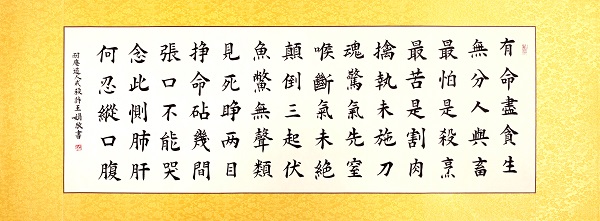 有命盡貪生
無分人與畜
最怕是殺烹
最苦是割肉
擒執未施刀
魂驚氣先窒
喉斷氣未絕
顛倒三起伏
魚鱉無聲類
見死睜兩目
掙命砧幾間
張口不能哭
念此惻肺肝
何忍縱口腹
耐庵道人戒殺詩王娟敬書